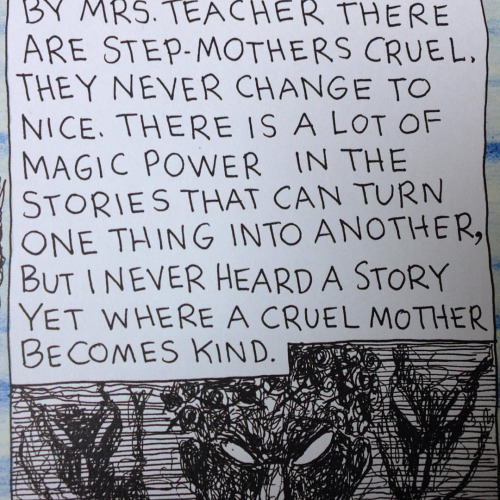 BY MRS. TEACHER THERE
ARE STEP-MOTHERS CRUEL.
THEY NEVER CHANGE TO
NICE. THERE IS A LOT OF
MAGIC POWER IN THE
STORIES THAT CAN TURN
ONE THING INTO ANOTHER,
BUT I NEVER HEARD A STORY
YET WHERE A CRUEL MOTHER
BECOMES KIND.